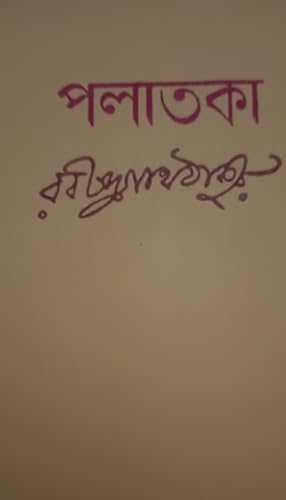 পলাতকা
রবীন্দ্রনাথ ঠাকুর